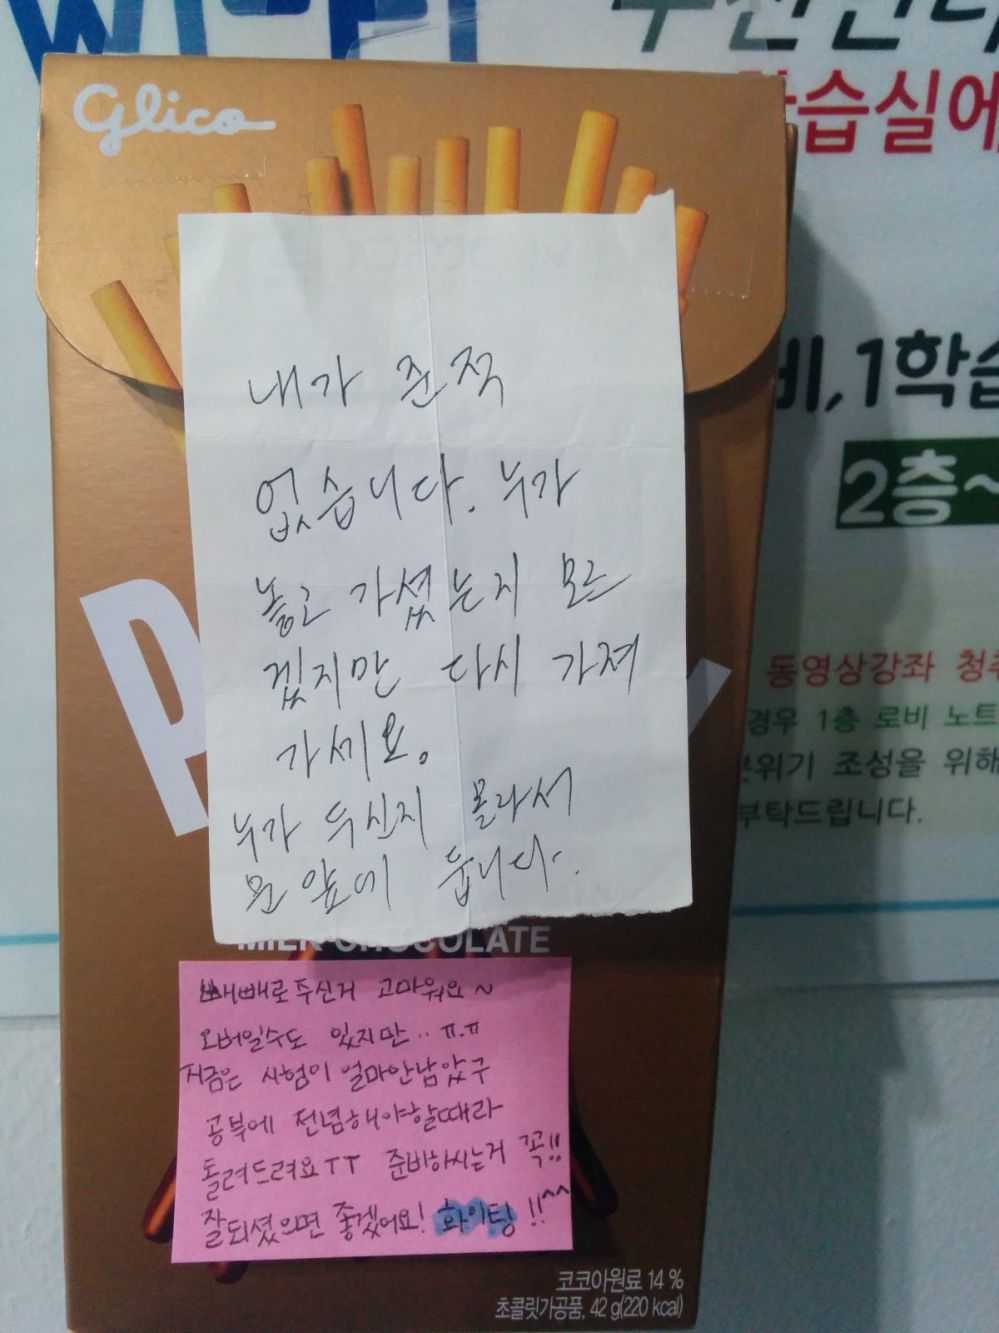 Wi-Fi
Glico
습실에
내가 준적
없습니다. 누가
놓고 가셨는지 모르
겠지만 다시 가져
가세요.
누가 두신지 몰라서
문 앞에 둡니다.
MILK CHOCOLATE
빼빼로 두신거 고마워요~
오버일수도 있지만.. ㅠ.ㅠ
지금은 시험이 얼마안남았구
공부에 전념해야할때라
돌려드려요ㅜㅜ 준비하시는거 꼭!!
잘되셨으면 좋겠어요! 화이팅!!^^
코코아원료 14 %
초콜릿가공품, 42 g(220 kcal)
비,1학습
2층~
동영상강좌 청취
경우 1층 로비 노트
위기 조성을 위해
부탁드립니다.